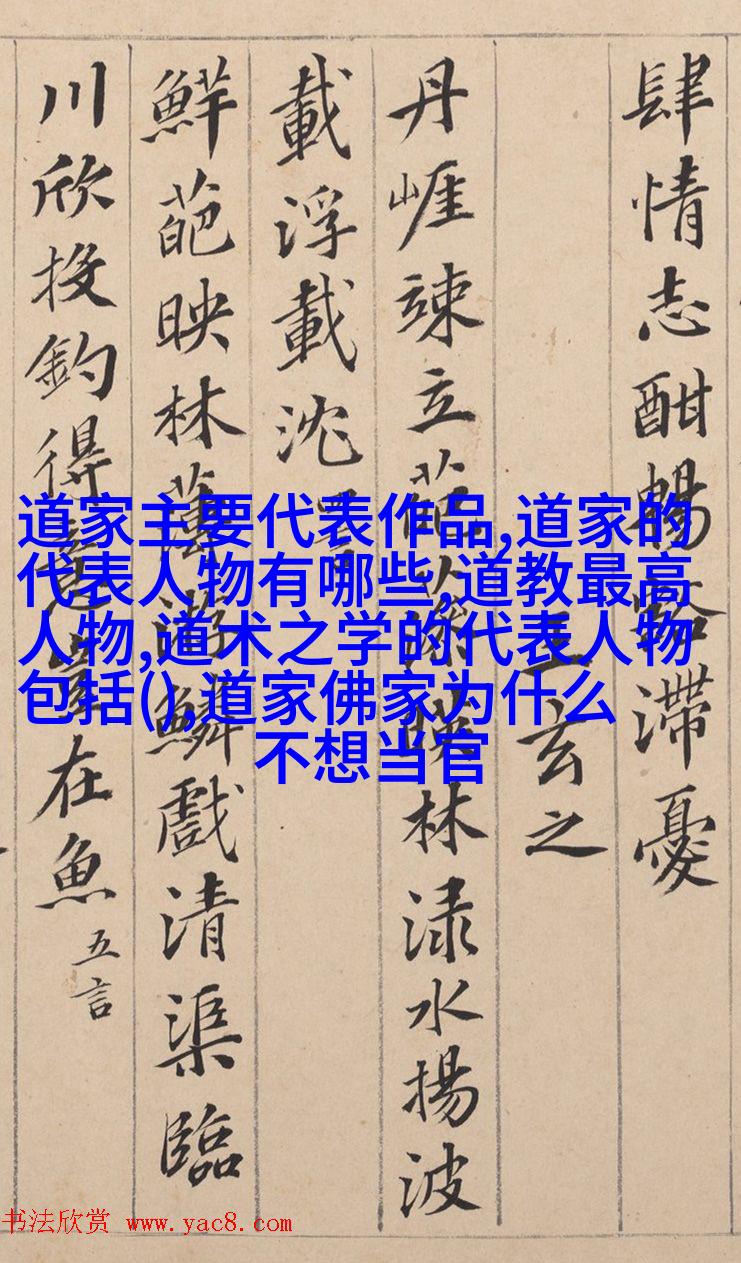 肆情志酣暢豁滯憂
玄之
丹崕竦立葩藻暎林淥水揚波
載浮載沈
鮮葩映林薄游鱗戲清渠臨
川欣投釣得意豈在魚 五言
道家主要代表作品,道家的
代表人物有哪些,道教最高
人物,道术之学的代表人物
包括(),道家佛家为什么
不想当官
书法欣赏 www.yac8.com